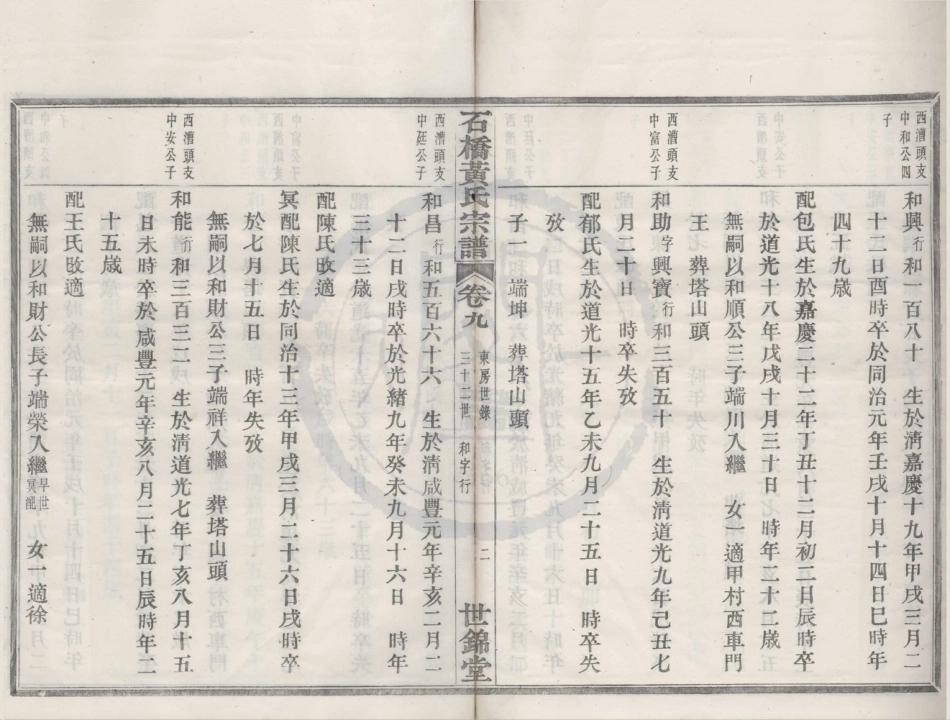 西漕頭支
中和公四
子
和興行和一百八十 生於清嘉慶十九年甲戌三月二
十二日酉時卒於同治元年壬戌十月十四日巳時年
四十九歲
配包氏生於嘉慶二十二年丁丑十二月初二日辰時卒
於道光十八年戊戌十月三十日 時年二十二歲
無嗣以和順公三子端川入繼 女一適甲村西車門
王 葬塔山頭
西漕頭支
中富公子
和助字興寶行和三百五十 生於清道光九年己丑七
月二十日 時卒失攷
配郁氏生於道光十五年乙未九月二十五日 時卒失
攷
子一端坤 葬塔山頭
西漕頭支
中廷公子
和昌行和五百六十六 生於清咸豐元年辛亥二月二
十二日戌時卒於光緒九年癸未九月十六日 時年
三十三歲
配陳氏改適
冥配陳氏生於同治十三年甲戌三月二十六日戌時卒
於七月十五日 時年失攷
無嗣以和財公三子端祥入繼 葬塔山頭
西漕頭支
中安公子
和能行和三百三二 生於清道光七年丁亥八月十五
日未時卒於咸豐元年辛亥八月二十五日辰時年二
十五歲
配王氏改適
無嗣以和財公長子端榮入繼早世冥配 女一適徐
石橋黃氏宗譜 卷九 東房世錄 三十二世 和字行 二 世錦堂